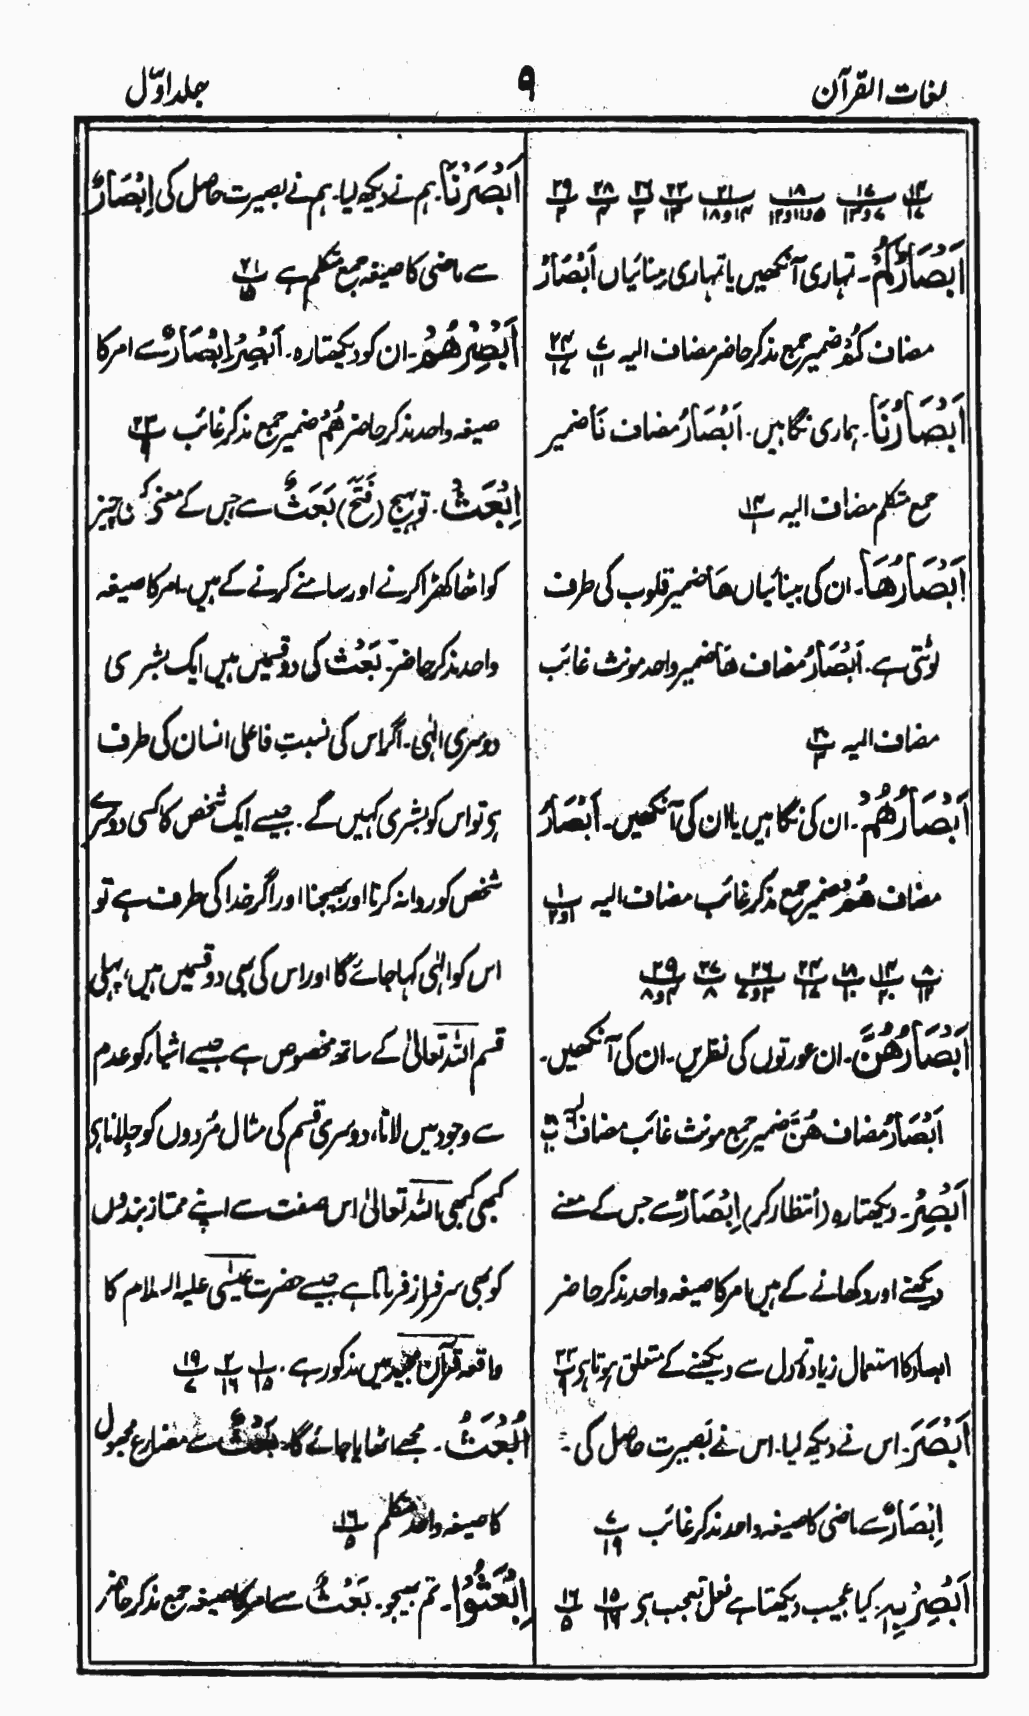 لغات القرآن ۹ جلد اوّل
اَبْصَارُكُمْ۔ تمہاری آنکھیں یا تمہاری بینائیاں اَبْصَارُ
مضاف كُمْ ضمیر جمع مذکر حاضر مضاف الیہ
اَبْصَارُنَا۔ ہماری نگاہیں۔ اَبْصَارُ مضاف نَا ضمیر
جمع متکلم مضاف الیہ پ ۱۴/۱
اَبْصَارُهَا۔ ان کی بینائیاں هَا ضمیر قلوب کی طرف
لوٹتی ہے۔ اَبْصَارُ مضاف هَا ضمیر واحد مونث غائب
مضاف الیہ پ ۳۰/۳
اَبْصَارُهُمْ۔ ان کی نگاہیں یا ان کی آنکھیں۔ اَبْصَارُ
مضاف هُمْ ضمیر جمع مذکر غائب مضاف الیہ پ ۱/۲و۱
اَبْصَارُهُنَّ۔ ان عورتوں کی نظریں۔ ان کی آنکھیں۔
اَبْصَارُ مضاف هُنَّ ضمیر جمع مونث غائب مضاف الیہ
اَبْصِرْ۔ دیکھتا رہ (انتظار کر) اِبْصَارٌ سے جس کے معنے
دیکھنے اور دکھانے کے ہیں امر کا صیغہ واحد مذکر حاضر
ابصار کا استعمال زیادہ تر دل سے دیکھنے کے متعلق ہوتا ہی پ ۲۳/۹
اَبْصَرَ۔ اس نے دیکھ لیا۔ اس نے بصیرت حاصل کی۔
اِبْصَارٌ سے ماضی کا صیغہ واحد مذکر غائب پ ۷/۱۹
اَبْصِرْ بِهٖ۔ کیا عجیب دیکھتا ہے فعل تعجب ہی پ ۱۵/۱۶ پ ۱۶/۵
اَبْصَرْنَا۔ ہم نے دیکھ لیا۔ ہم نے بصیرت حاصل کی اِبْصَارٌ
سے ماضی کا صیغہ جمع متکلم ہے پ ۲۱/۱۵
اَبْصِرْهُمْ۔ ان کو دیکھتا رہ۔ اَبْصِرْ اِبْصَارٌ سے امر کا
صیغہ واحد مذکر حاضر هُمْ ضمیر جمع مذکر غائب پ ۲۳/۹
اِبْعَثْ۔ تو بھیج (فَتَحَ) بَعْثٌ سے جس کے معنی کسی چیز
کو اٹھا کھڑا کرنے اور سامنے کرنے کے ہیں۔ امر کا صیغہ
واحد مذکر حاضر۔ بَعْثٌ کی دو قسمیں ہیں ایک بشری
دوسری الٰہی۔ اگر اس کی نسبتِ فاعلی انسان کی طرف
ہی تو اس کو بشری کہیں گے۔ جیسے ایک شخص کا کسی دوسرے
شخص کو روانہ کرنا اور بھیجنا اور اگر خدا کی طرف ہے تو
اس کو الٰہی کہا جائے گا اور اس کی بھی دو قسمیں ہیں، پہلی
قسم اللہ تعالیٰ کے ساتھ مخصوص ہے جیسے اشیاء کو عدم
سے وجود میں لانا، دوسری قسم کی مثال مُردوں کو جِلانا ہی
کبھی کبھی اللہ تعالیٰ اس صفت سے اپنے ممتاز بندوں
کو بھی سرفراز فرماتا ہے جیسے حضرت عیسٰی علیہ السلام کا
واقعہ قرآن مجید میں مذکور ہے۔ پ ۱/۱۵ پ ۲/۱۶ پ ۱۹/۷
اُبْعَثُ۔ مجھے اٹھایا جائے گا۔ بَعْثٌ سے مضارع مجہول
کا صیغہ واحد متکلم پ ۱۶/۵
اِبْعَثُوْا۔ تم بھیجو۔ بَعْثٌ سے امر کا صیغہ جمع مذکر حاضر